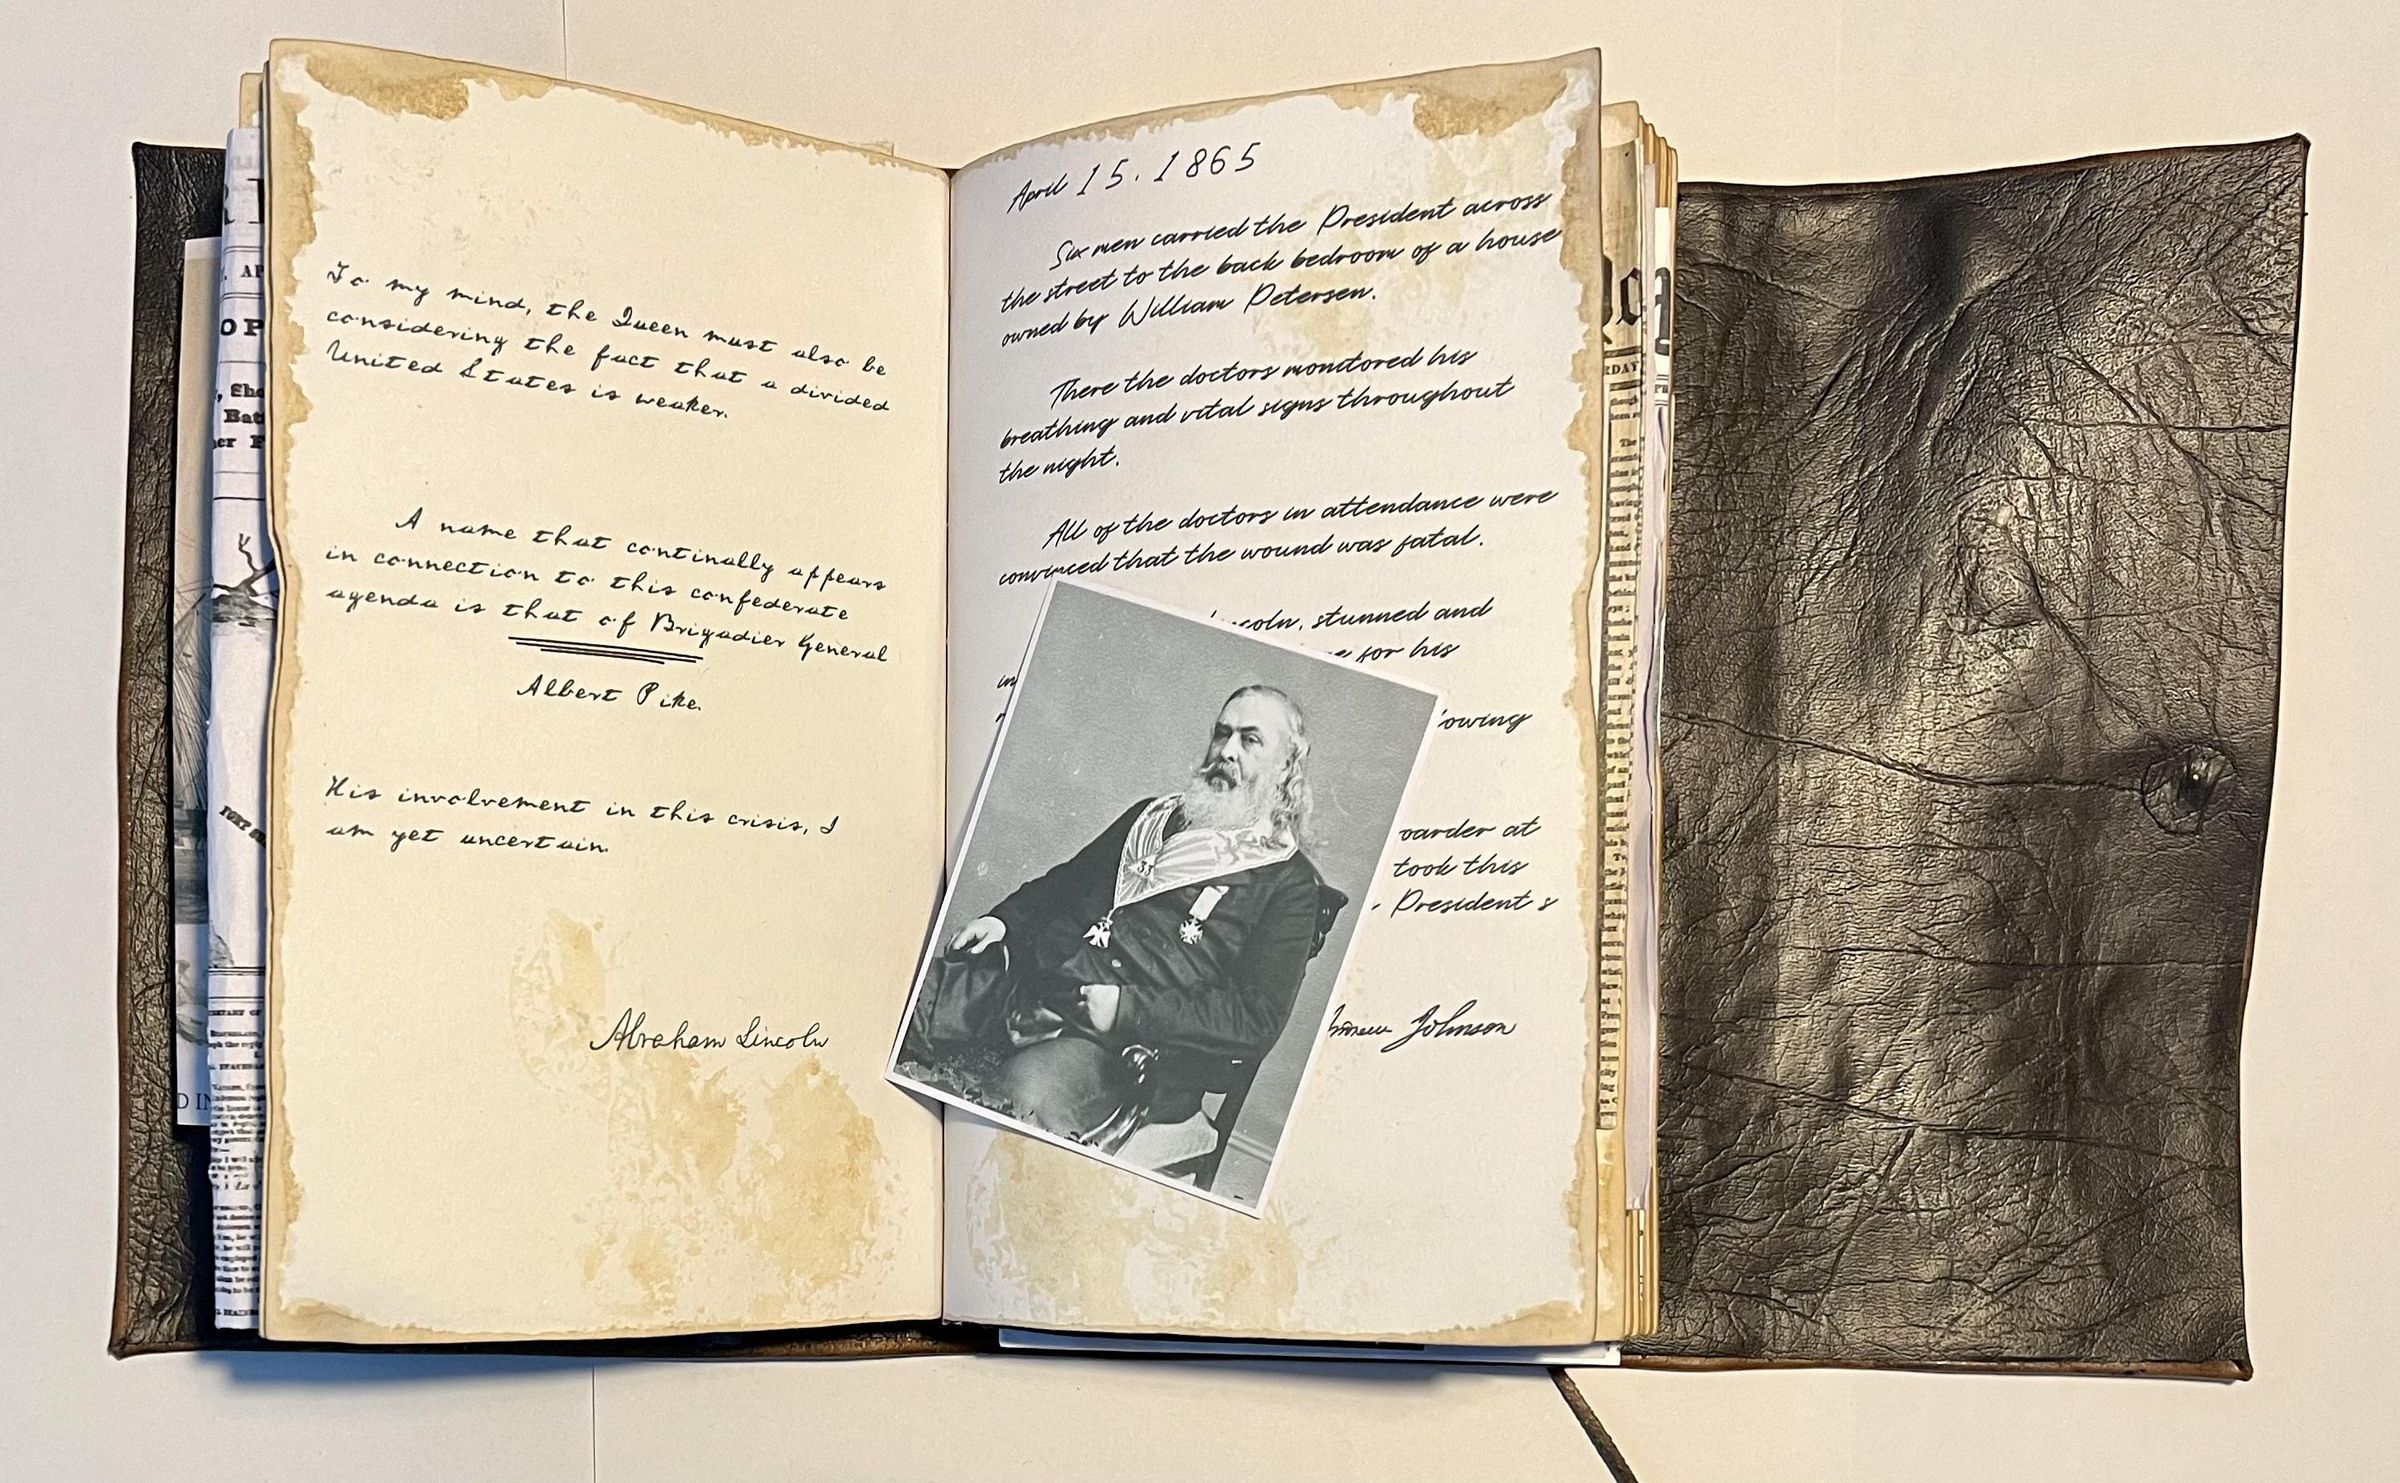 To my mind, the Queen must also be
considering the fact that a divided
United States is weaker.
A name that continually appears
in connection to this confederate
agenda is that of Brigadier General
Albert Pike.
His involvement in this crisis, I
am yet uncertain.
Abraham Lincoln
April 15. 1865
Six men carried the President across
the street to the back bedroom of a house
owned by William Petersen.
There the doctors monitored his
breathing and vital signs throughout
the night.
All of the doctors in attendance were
convinced that the wound was fatal.
stunned and
for his
at
took this
President s
Johnson
33